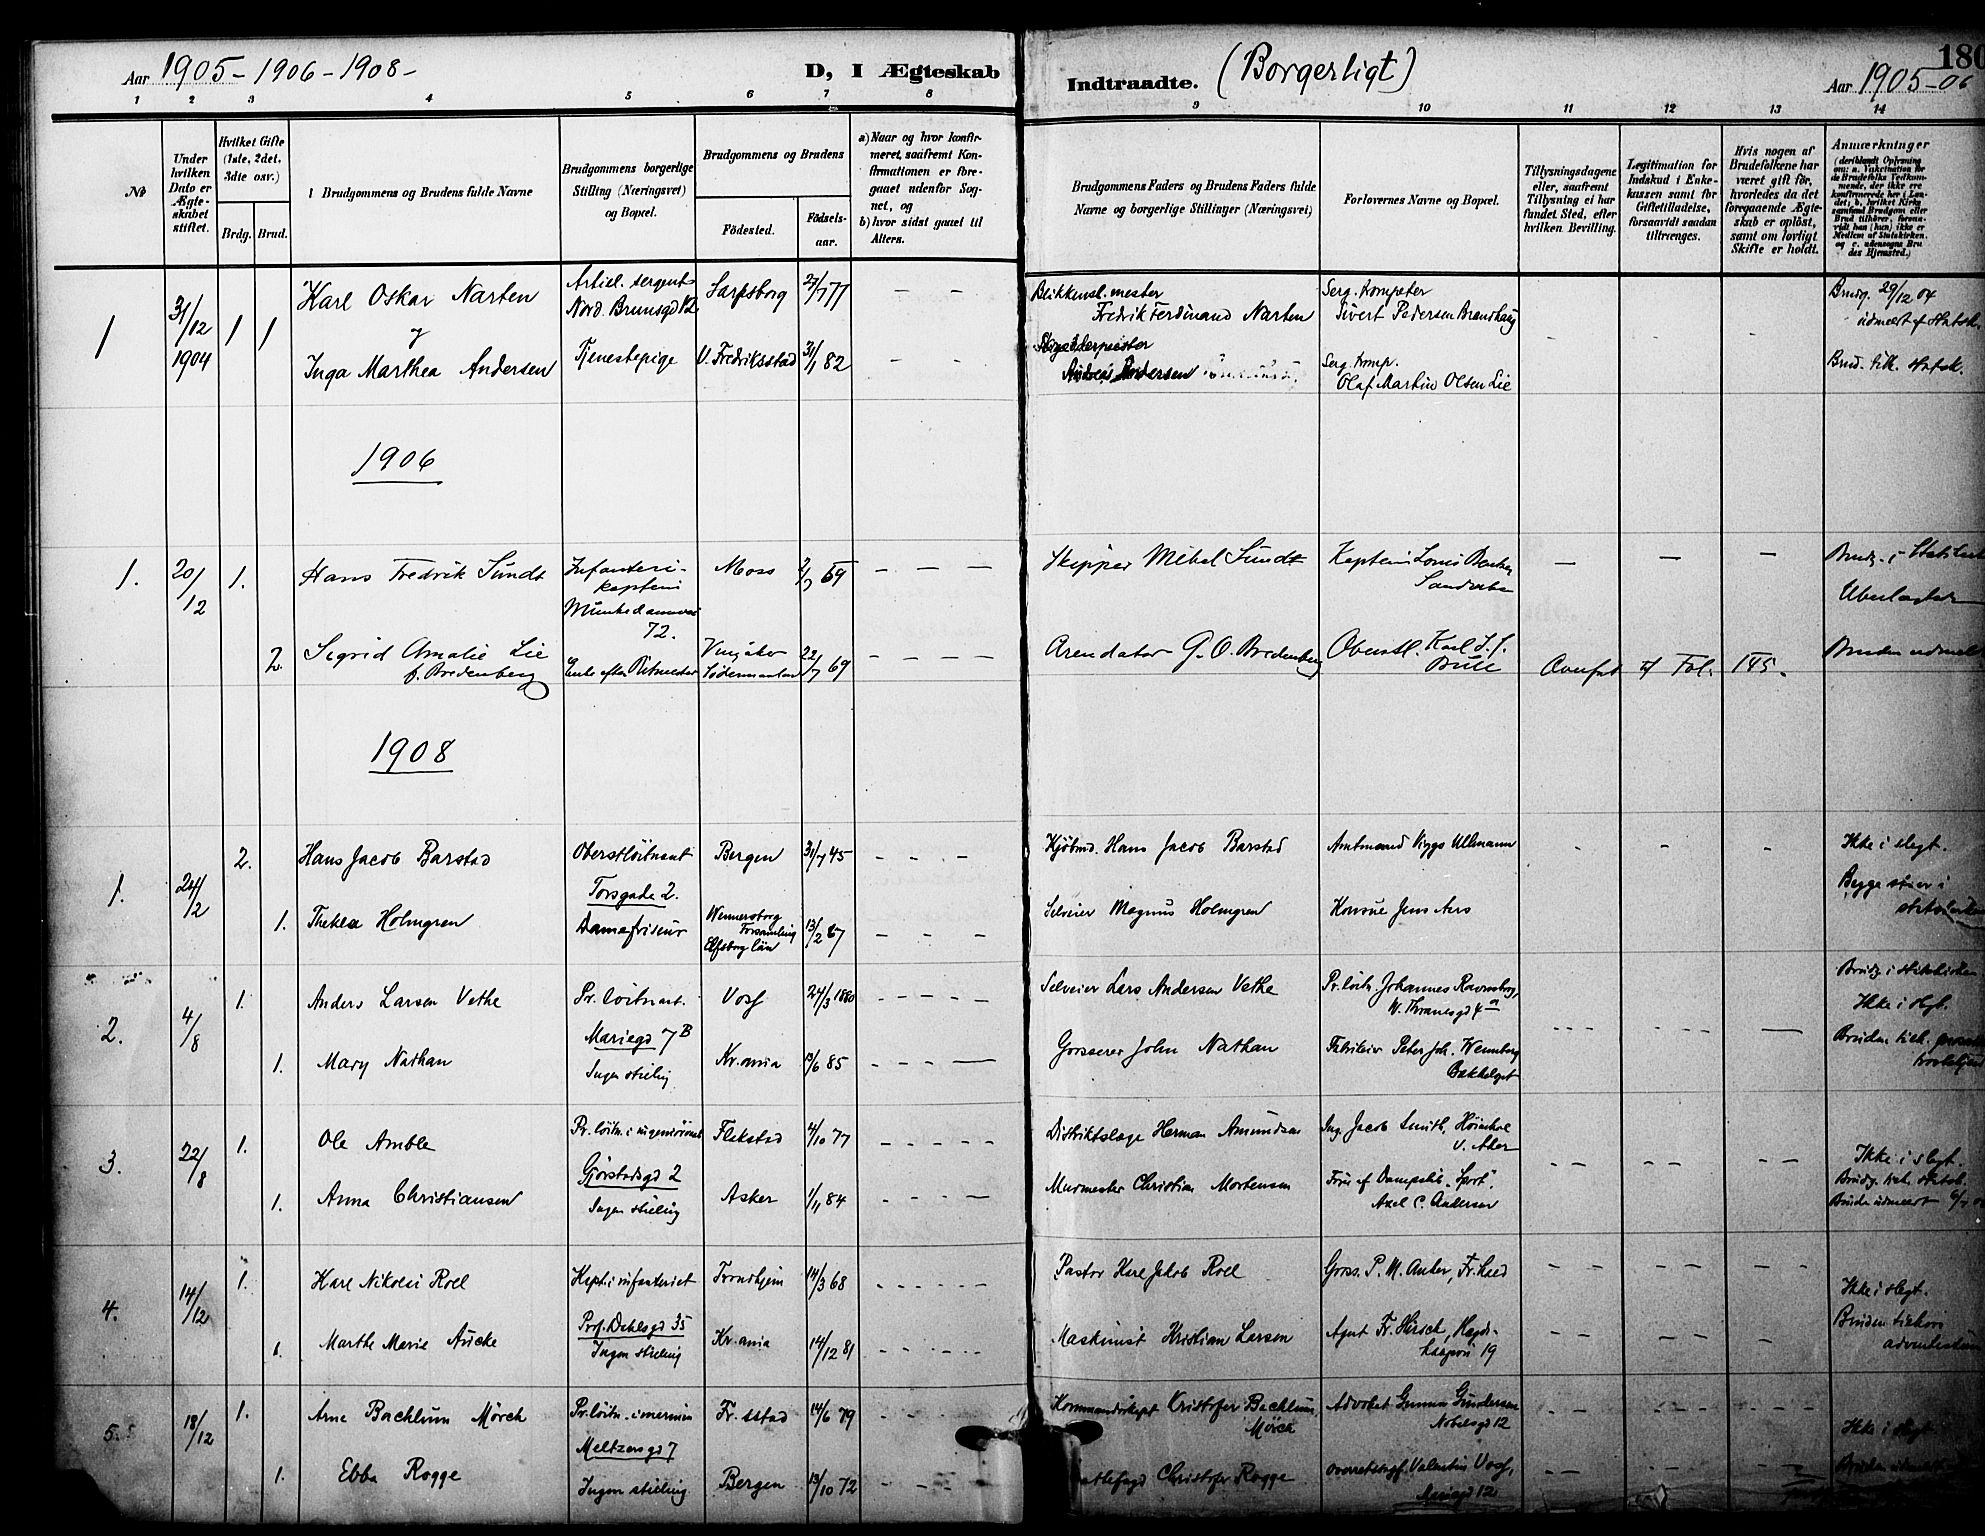 Aar 1905 - 1906 - 1908 -
D, I Ægteskab Indtraadte. (Borgerligt)
180
Aar 1905-06
1 2 3 4 5 6 7 8 9 10 11 12 13 14
No
Under hvilken Dato er Ægteskabet stiftet.
Hvilket Gifte (1ste, 2det, 3dte osv.)
Brdg. Brud.
Brudgommens og Brudens fulde Navne
Brudgommens borgerlige Stilling (Næringsvei) og Bopæl.
Brudgommens og Brudens
Födested.
Födsels-aar.
a) Naar og hvor konfirmeret, saafremt Konfirmationen er foregaaet udenfor Sognet, og
b) hvor sidst gaaet til Alters.
Brudgommens Faders og Brudens Faders fulde Navne og borgerlige Stillinger (Næringsvei)
Forlovernes Navne og Bopæl.
Tillysningsdagene eller, saafremt Tillysning ei har fundet Sted, efter hvilken Bevilling.
Legitimation for Indskud i Enkekassen samt for Giftetilladelse, forsaavidt saadan tiltrænges.
Hvis nogen af Brudefolkene har været gift för, hvorledes da det foregaaende Ægteskab er oplöst, samt om lovligt Skifte er holdt.
Anmærkninger
1 31/12 1904 1 1
Karl Oskar Narten
Artiel. sergent
Nord. Brunsgd 12
Sarpsborg 27/7 77
Blikkensl. mester
Fredrik Ferdinand Narten
Sivert Pedersen Brandhaug
Brudg. 29/12 04
udmeldt af Statsk.
Inga Marthea Andersen
Tjenestepige
V. Fredriksstad 31/1 82
Andersen
Serg. Komp.
Olaf Martin Olsen Lie
Brud. tilh. Statsk.
1906
1. 20/12 1.
Hans Fredrik Sundt
Infanteri-kaptein
Munkedamsvei 72.
Moss 69
Skipper Mikal Sundt
Kaptein Louis
Brudg. i Statskirk
2.
Sigrid Amalie Lie f. Bredenberg
Enke efter Ritmester
Vingåker Södermanland 22/7 69
Arendator G. O. Bredenberg
Oberstl. Karl
Overfört af Fol. 145.
Bruden udmeldt
1908
1. 24/12 2.
Hans Jacob Barstad
Oberstlöitnant
Torsgade 2.
Bergen 31/7 45
Kjöbmd. Hans Jacob Barstad
Amtmand Viggo Ullmann
Ikke i slegt.
Begge staar i statskirken
1.
Thekla Holmgren
Damefrisör
Wennersborg Forsamling Elfsborg län 13/2 67
Selveier Magnus Holmgren
Konsul Jens Aars
2. 4/8 1.
Anders Larsen Vethe
Pr. löitnant.
Mariegd 7B
Voss 24/3 1880
Selveier Lars Andersen Vethe
Pr. löitn. Johannes Ravnsborg,
W. Thranesgd 4
Brudg i statskirken
Ikke i slegt.
1.
Mary Nathan
Ingen stilling
Kr.ania 13/6 85
Grosserer John Nathan
Fabrikeier Peter Joh. Wennberg
Bakkelaget
3. 22/8 1.
Ole Amble
Pr. löitn. i ingeniörvaabnet
Gjörstadsgd 2
Flekstad 4/10 77
Distriktslæge Herman Amundsen
Ing. Jacob Smith,
v. Aker
Ikke i slegt.
1.
Anna Christiansen
Ingen stilling
Asker 1/11 84
Murmester Christian Mortensen
Förer af Dampskib "Sport".
Axel C. Andersen
Brudg. tilh. statsk.
Bruden udmeldt
4. 14/12 1.
Karl Nikolai Roll
Kapt. i infanteriet
Prof. Dahlsgd 35
Trondhjem 14/3 68
Pastor Karl Jakob Roll
Gross. P. M. Anker, Fr.hald
Ikke i slegt.
1.
Marthe Marie Aucke
Ingen stilling
Kr.ania 14/12 81
Maskinist Kristian Larsen
Agent Fr. Hirsch,
19
Bruden tilhörer adventistsam
5. 18/12 1.
Arne Bachlum Mörch
Pr. löitn. i marinen
Meltzersgd 7
Fr.sstad 14/6 79
Kommandörkapt Kristofer Bachlum Mörch
Advokat Gunnar Gundersen
Nobelsgd 12
Ikke i slegt.
1.
Ebba Rogge
Ingen stilling
Bergen 13/10 72
Christofer Rogge
Overretssagf. Valentin Voss,
Mariegd 12